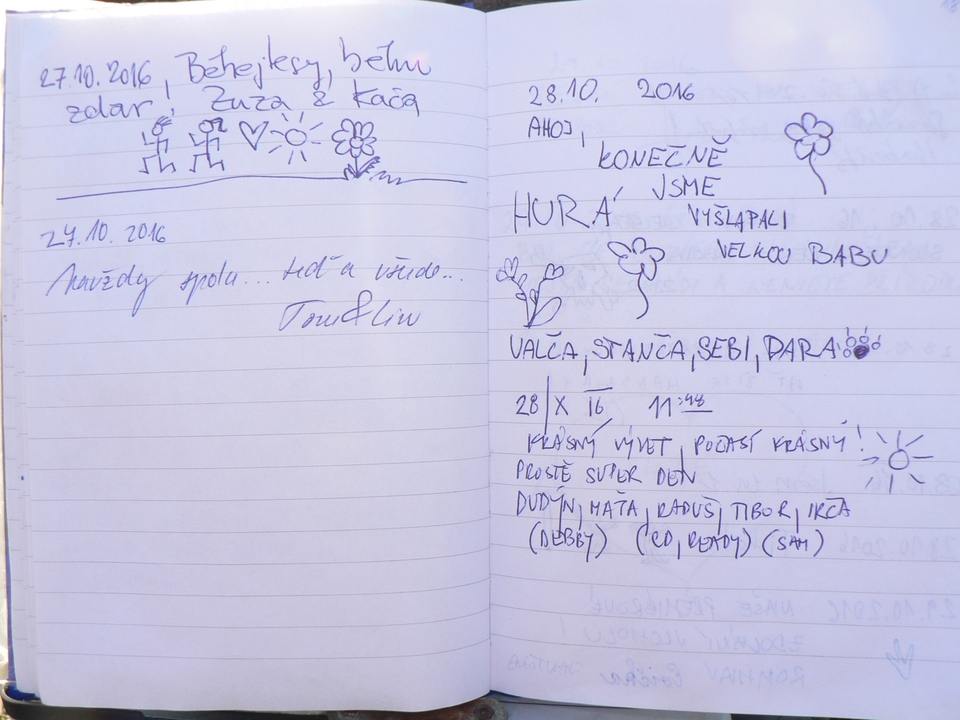 27.10.2016, Běhejlesy, běhu
zdar! Zuza & Kača
27.10.2016
Navždy spolu... teď a všude...
Tom & Liw
28.10. 2016
AHOJ,
KONEČNĚ
JSME
HURÁ VYŠLAPALI
VELKOU BABU
VALČA, STANČA, SEBI, DARA
28/X 16 11:48
KRÁSNÝ VÝVET, POČASÍ KRÁSNÝ!
PROSTĚ SUPER DEN
DUDÝN, MÁŤA, RADUŠ, TIBOR, IRČA
(DEBBY) (CD, READY) (SAM)